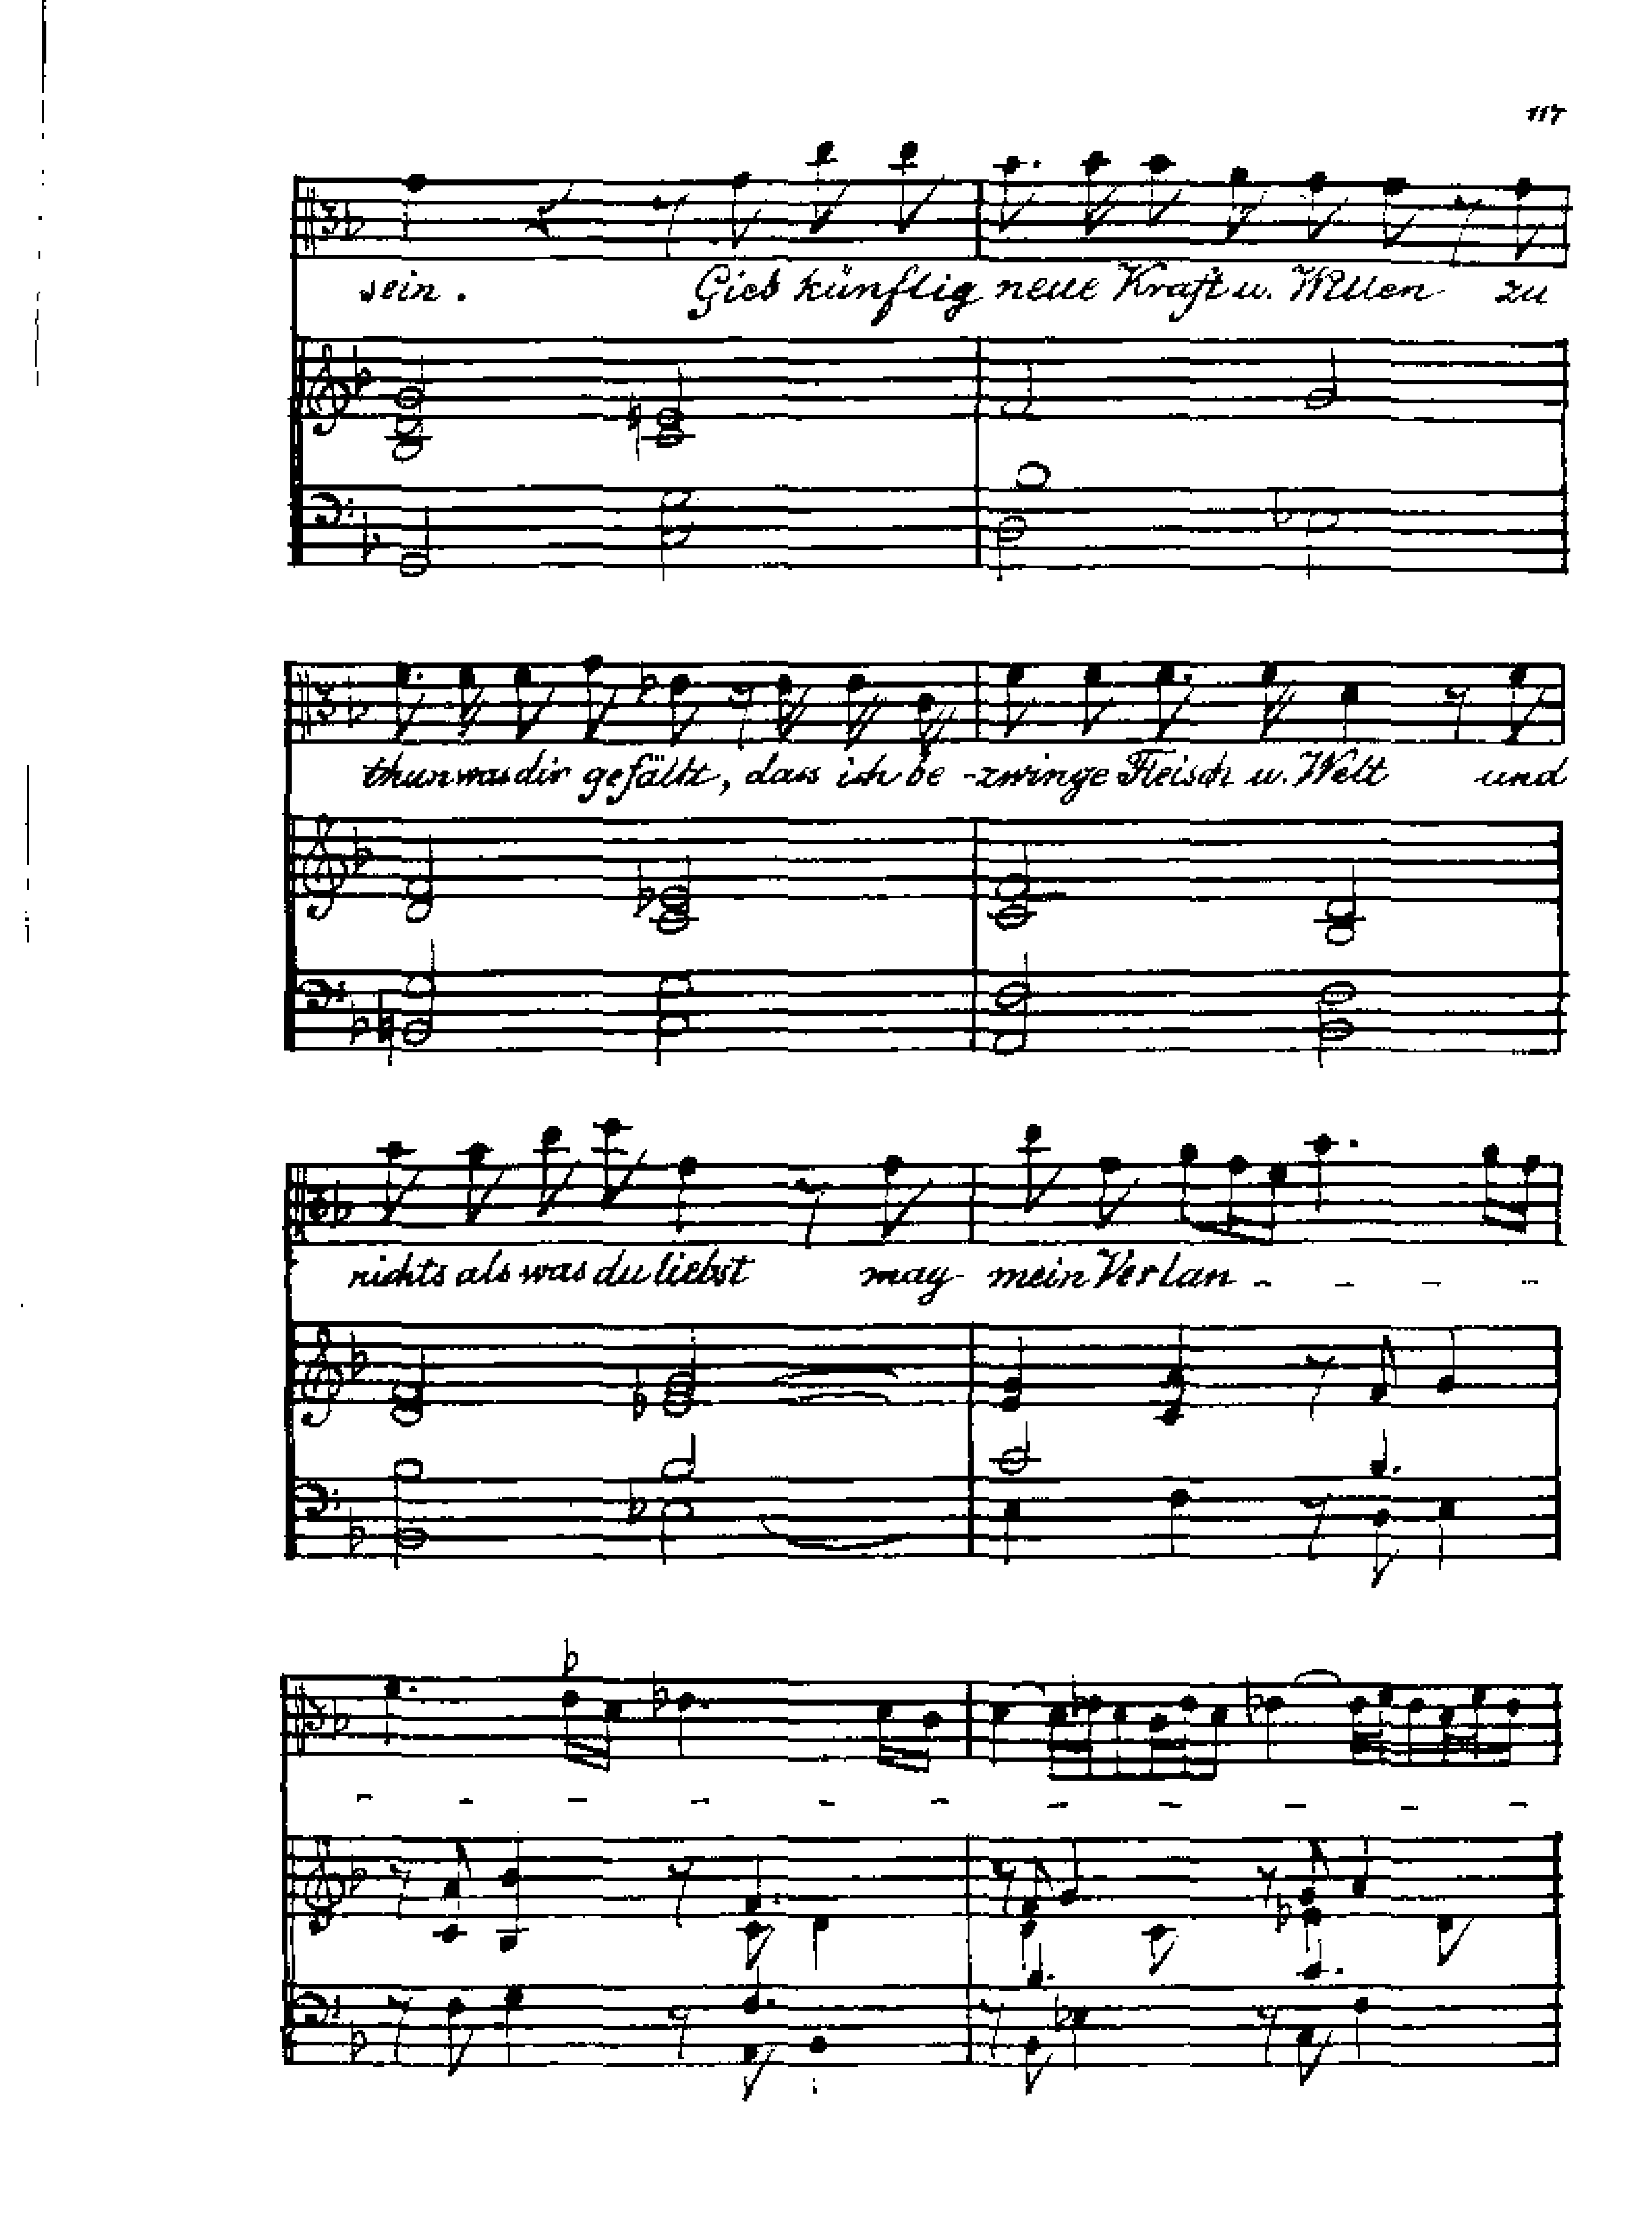 117
sein. Gieb künftig neue Kraft u. Willen zu
thun was dir gefällt, dass ich be-zwinge Fleisch u. Welt und
nichts als was du liebst may mein Verlan - - - -
- - - - - - - - - - -